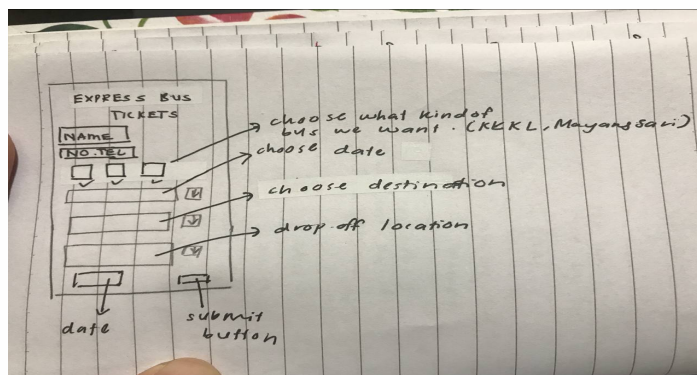 EXPRESS BUS
TICKETS
NAME
NO.TEL
choose what kind of
bus we want. (KKKL, Mayang Sari)
choose date
choose destination
drop off location
date
submit
button